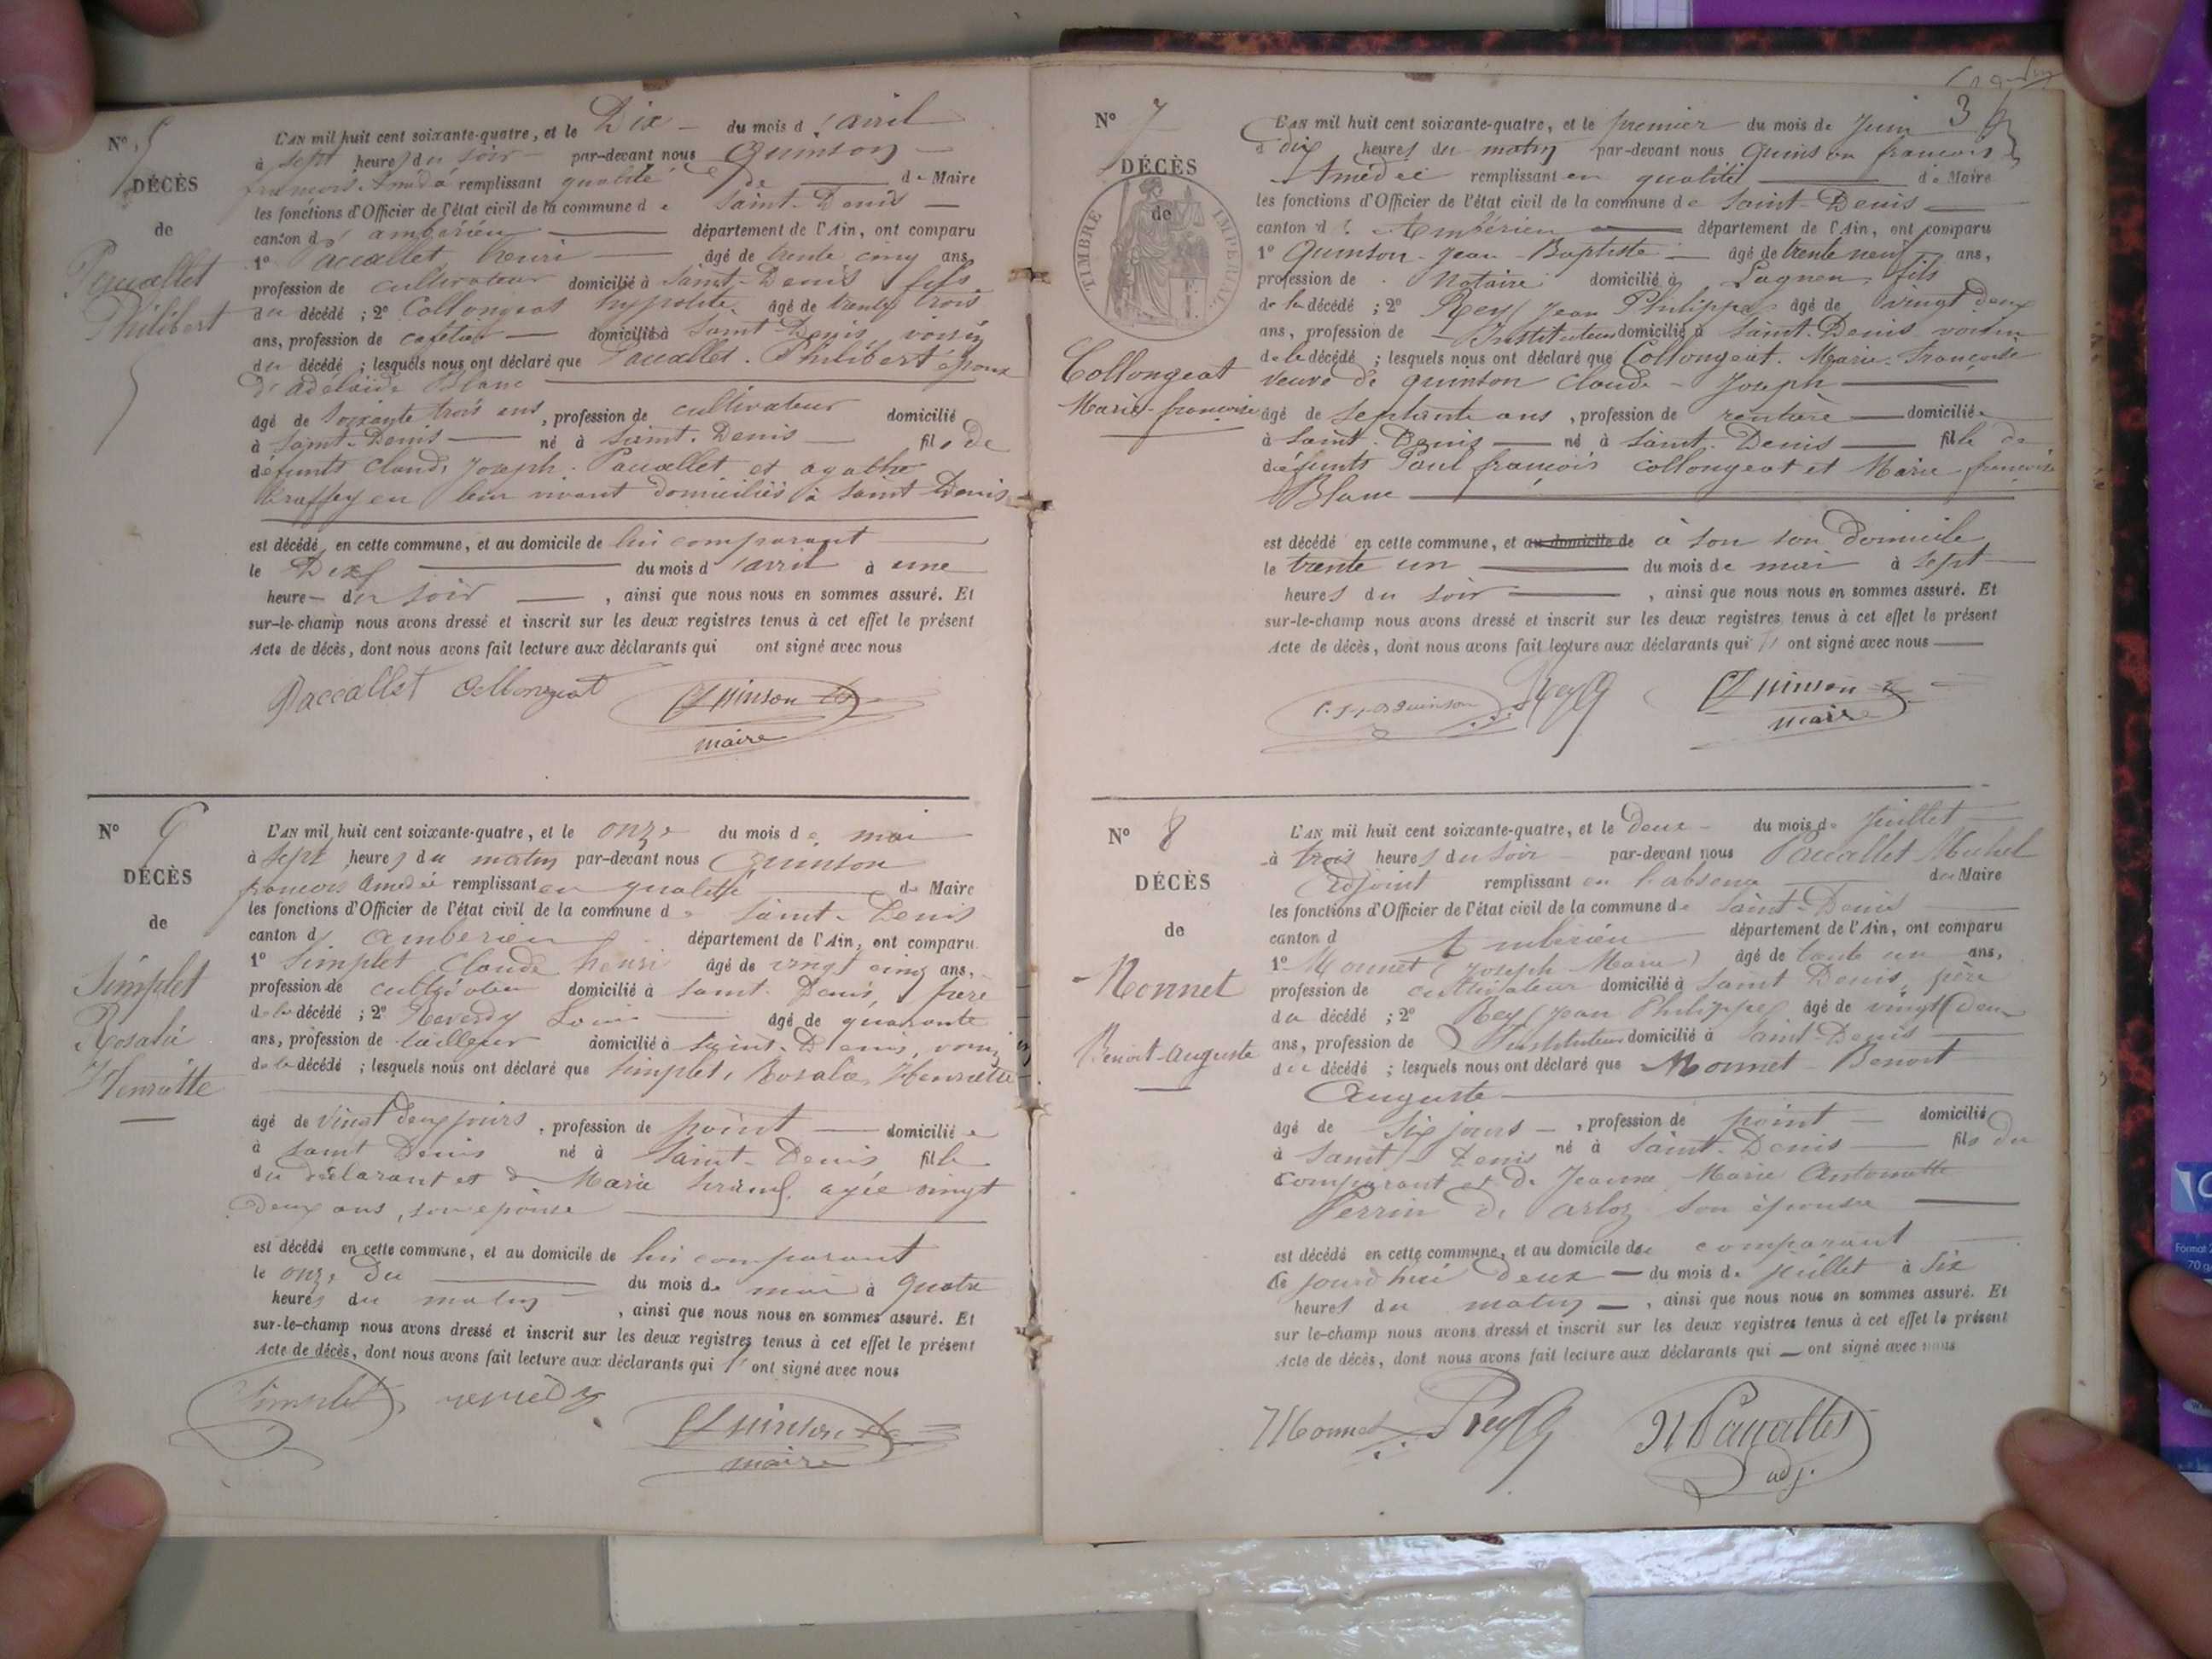 N° 5
DÉCÈS
de
Pauvallet
Philibert
L'AN mil huit cent soixante-quatre, et le Dix du mois d'avril
à sept heures du soir par-devant nous Quinson
françois Amédé remplissant qualité de de Maire
les fonctions d'Officier de l'état civil de la commune de Saint-Denis
canton d'ambérieu département de l'Ain, ont comparu
1° henri âgé de trente cinq ans,
profession de cultivateur domicilié à Saint-Denis fils
du décédé ; 2° Collongeat hypolite âgé de trois
ans, profession de cafetier domicilié à Saint Denis, voisin
du décédé ; lesquels nous ont déclaré que Philibert époux
d'adélaïde Blanc
âgé de soixante trois ans, profession de cultivateur domicilié
à Saint-Denis né à Saint-Denis fils de
défunts Claude Joseph et agathe
en leur vivant domiciliés à Saint Denis
est décédé en cette commune, et au domicile de lui comparant
le Dix du mois d'avril à une
heure du soir, ainsi que nous nous en sommes assuré. Et
sur-le-champ nous avons dressé et inscrit sur les deux registres tenus à cet effet le présent
Acte de décès, dont nous avons fait lecture aux déclarants qui ont signé avec nous
Paccallet Collongeat Quinson
maire
N° 6
DÉCÈS
de
Simplet
Rosalie
Henriette
L'AN mil huit cent soixante-quatre, et le onze du mois de mai
à sept heures du matin par-devant nous Quinson
françois Amédée remplissant en qualité de Maire
les fonctions d'Officier de l'état civil de la commune de Saint-Denis
canton d'ambérieu département de l'Ain, ont comparu
1° Simplet Claude henri âgé de vingt cinq ans,
profession de cultivateur domicilié à Saint-Denis, père
de la décédé ; 2° Reverdy Louis âgé de quarante
ans, profession de tailleur domicilié à Saint-Denis, voisin
de la décédé ; lesquels nous ont déclaré que Simplet, Rosalie, Henriette
âgé de vingt deux jours, profession de point domiciliée
à Saint Denis né à Saint-Denis fille
du déclarant et de Marie âgée vingt
deux ans, son épouse
est décédé en cette commune, et au domicile de lui comparant
le onze du du mois de mai à quatre
heures du matin, ainsi que nous nous en sommes assuré. Et
sur-le-champ nous avons dressé et inscrit sur les deux registres tenus à cet effet le présent
Acte de décès, dont nous avons fait lecture aux déclarants qui ont signé avec nous
Simplet reverdy Quinson
maire
3
N° 7
DÉCÈS
de
TIMBRE IMPERIAL
Collongeat
Marie-françoise
L'AN mil huit cent soixante-quatre, et le premier du mois de Juin
à dix heures du matin par-devant nous Quinson françois
Amédée remplissant en qualité de Maire
les fonctions d'Officier de l'état civil de la commune de Saint-Denis
canton d'Ambérieu département de l'Ain, ont comparu
1° Quinson Jean-Baptiste âgé de trente neuf ans,
profession de Notaire domicilié à Lagneu, fils
de la décédé ; 2° Rey Jean Philippe âgé de vingt deux
ans, profession de Instituteur domicilié à Saint-Denis voisin
de la décédé ; lesquels nous ont déclaré que Collongeat Marie-françoise
veuve de Quinson Claude-Joseph
âgé de septante ans, profession de rentière domiciliée
à Saint-Denis né à Saint-Denis fille de
défunts Paul françois Collongeat et Marie françoise
Blanc
est décédé en cette commune, et au domicile de à son son Domicile
le trente un du mois de mai à sept
heures du soir, ainsi que nous nous en sommes assuré. Et
sur-le-champ nous avons dressé et inscrit sur les deux registres tenus à cet effet le présent
Acte de décès, dont nous avons fait lecture aux déclarants qui ont signé avec nous
Quinson Rey Quinson
maire
N° 8
DÉCÈS
de
Monnet
Benoit-Auguste
L'AN mil huit cent soixante-quatre, et le Deux du mois de Juillet
à trois heures du soir par-devant nous Michel
Adjoint remplissant en l'absence du Maire
les fonctions d'Officier de l'état civil de la commune de Saint-Denis
canton d Ambérieu département de l'Ain, ont comparu
1° Monnet (Joseph Marie) âgé de trente un ans,
profession de cultivateur domicilié à Saint Denis, père
du décédé ; 2° Rey (Jean Philippe) âgé de vingt deux
ans, profession de Instituteur domicilié à Saint-Denis
du décédé ; lesquels nous ont déclaré que Monnet-Benoit
Auguste
âgé de Six jours, profession de point domicilié
à Saint-Denis né à Saint-Denis fils du
comparant et de Jeanne Marie Antoinette
Perrin de son épouse
est décédé en cette commune, et au domicile du comparant
Ce jourd'hui deux du mois de Juillet à Six
heures du matin, ainsi que nous nous en sommes assuré. Et
sur le-champ nous avons dressé et inscrit sur les deux registres tenus à cet effet le présent
Acte de décès, dont nous avons fait lecture aux déclarants qui ont signé avec nous
Monnet Rey
adj.
Format
70 g